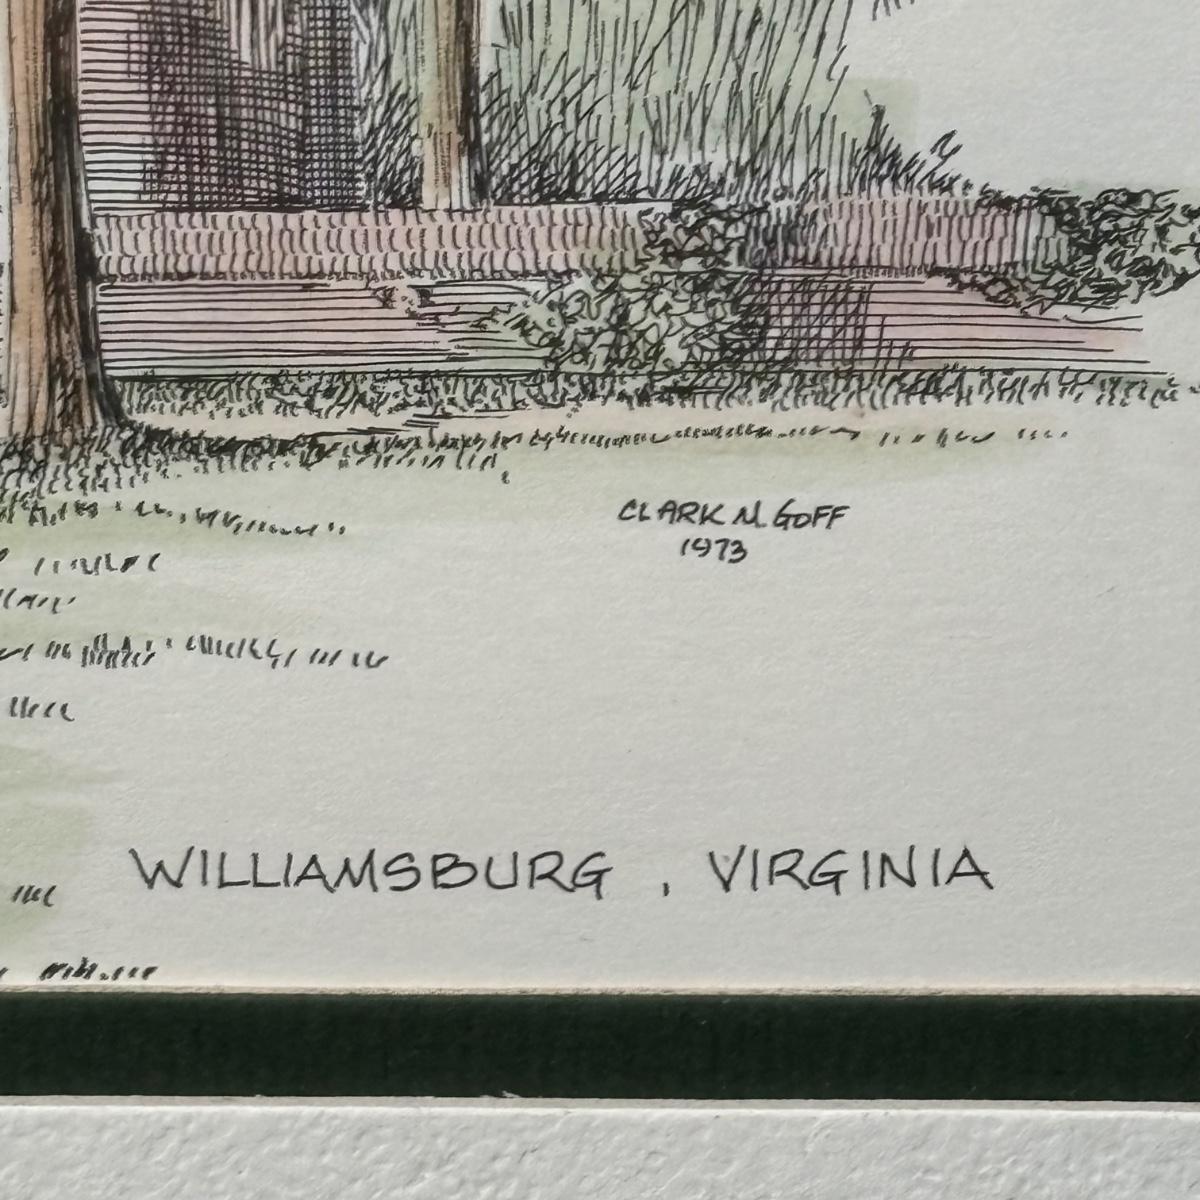 CLARK N. GOFF
1973
WILLIAMSBURG, VIRGINIA